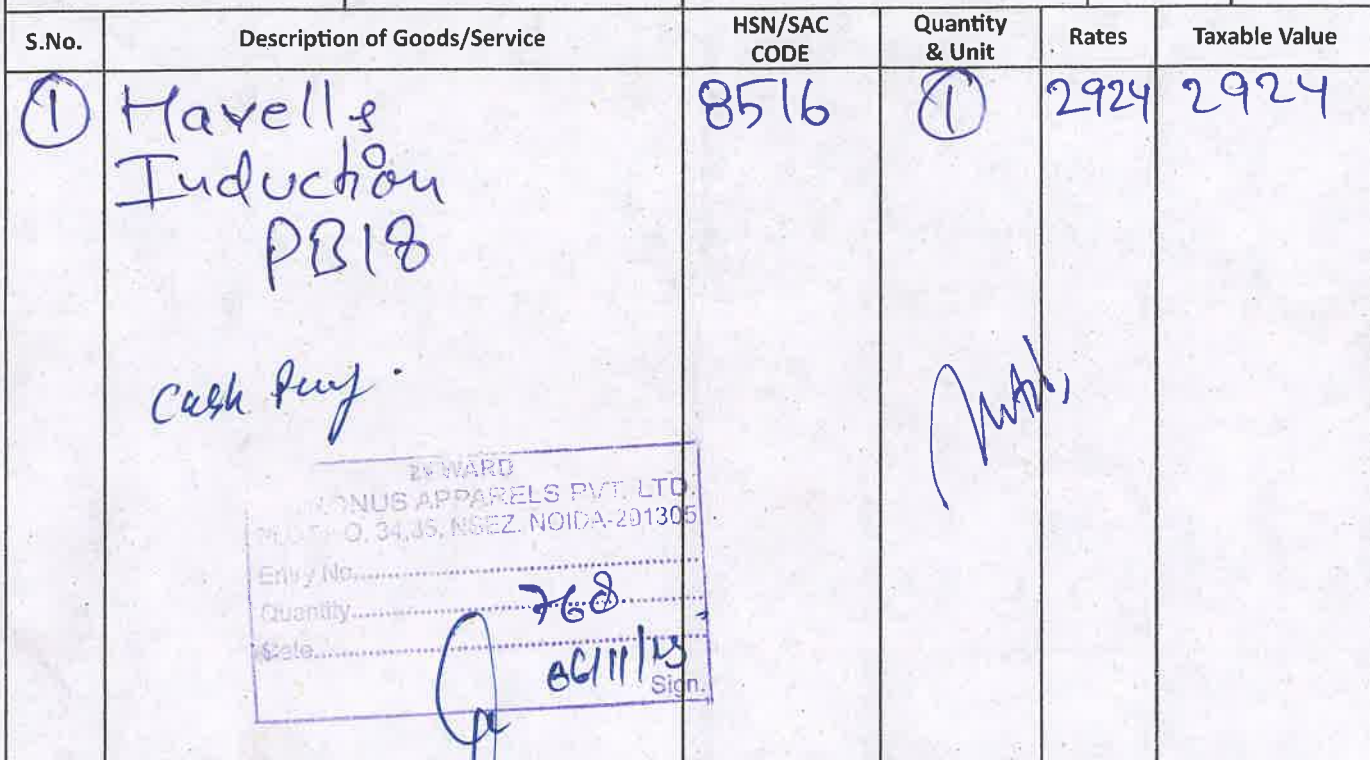 S.No. Description of Goods/Service HSN/SAC CODE Quantity & Unit Rates Taxable Value
1 Havells 8516 1 2924 2924
Induction
PB18
Cash
WARD
NUS APPARELS PVT. LTD.
O. 34,35, NSEZ, NOIDA-201305
Entry No.
Quantity 768
Date 06/11/23
Sign.